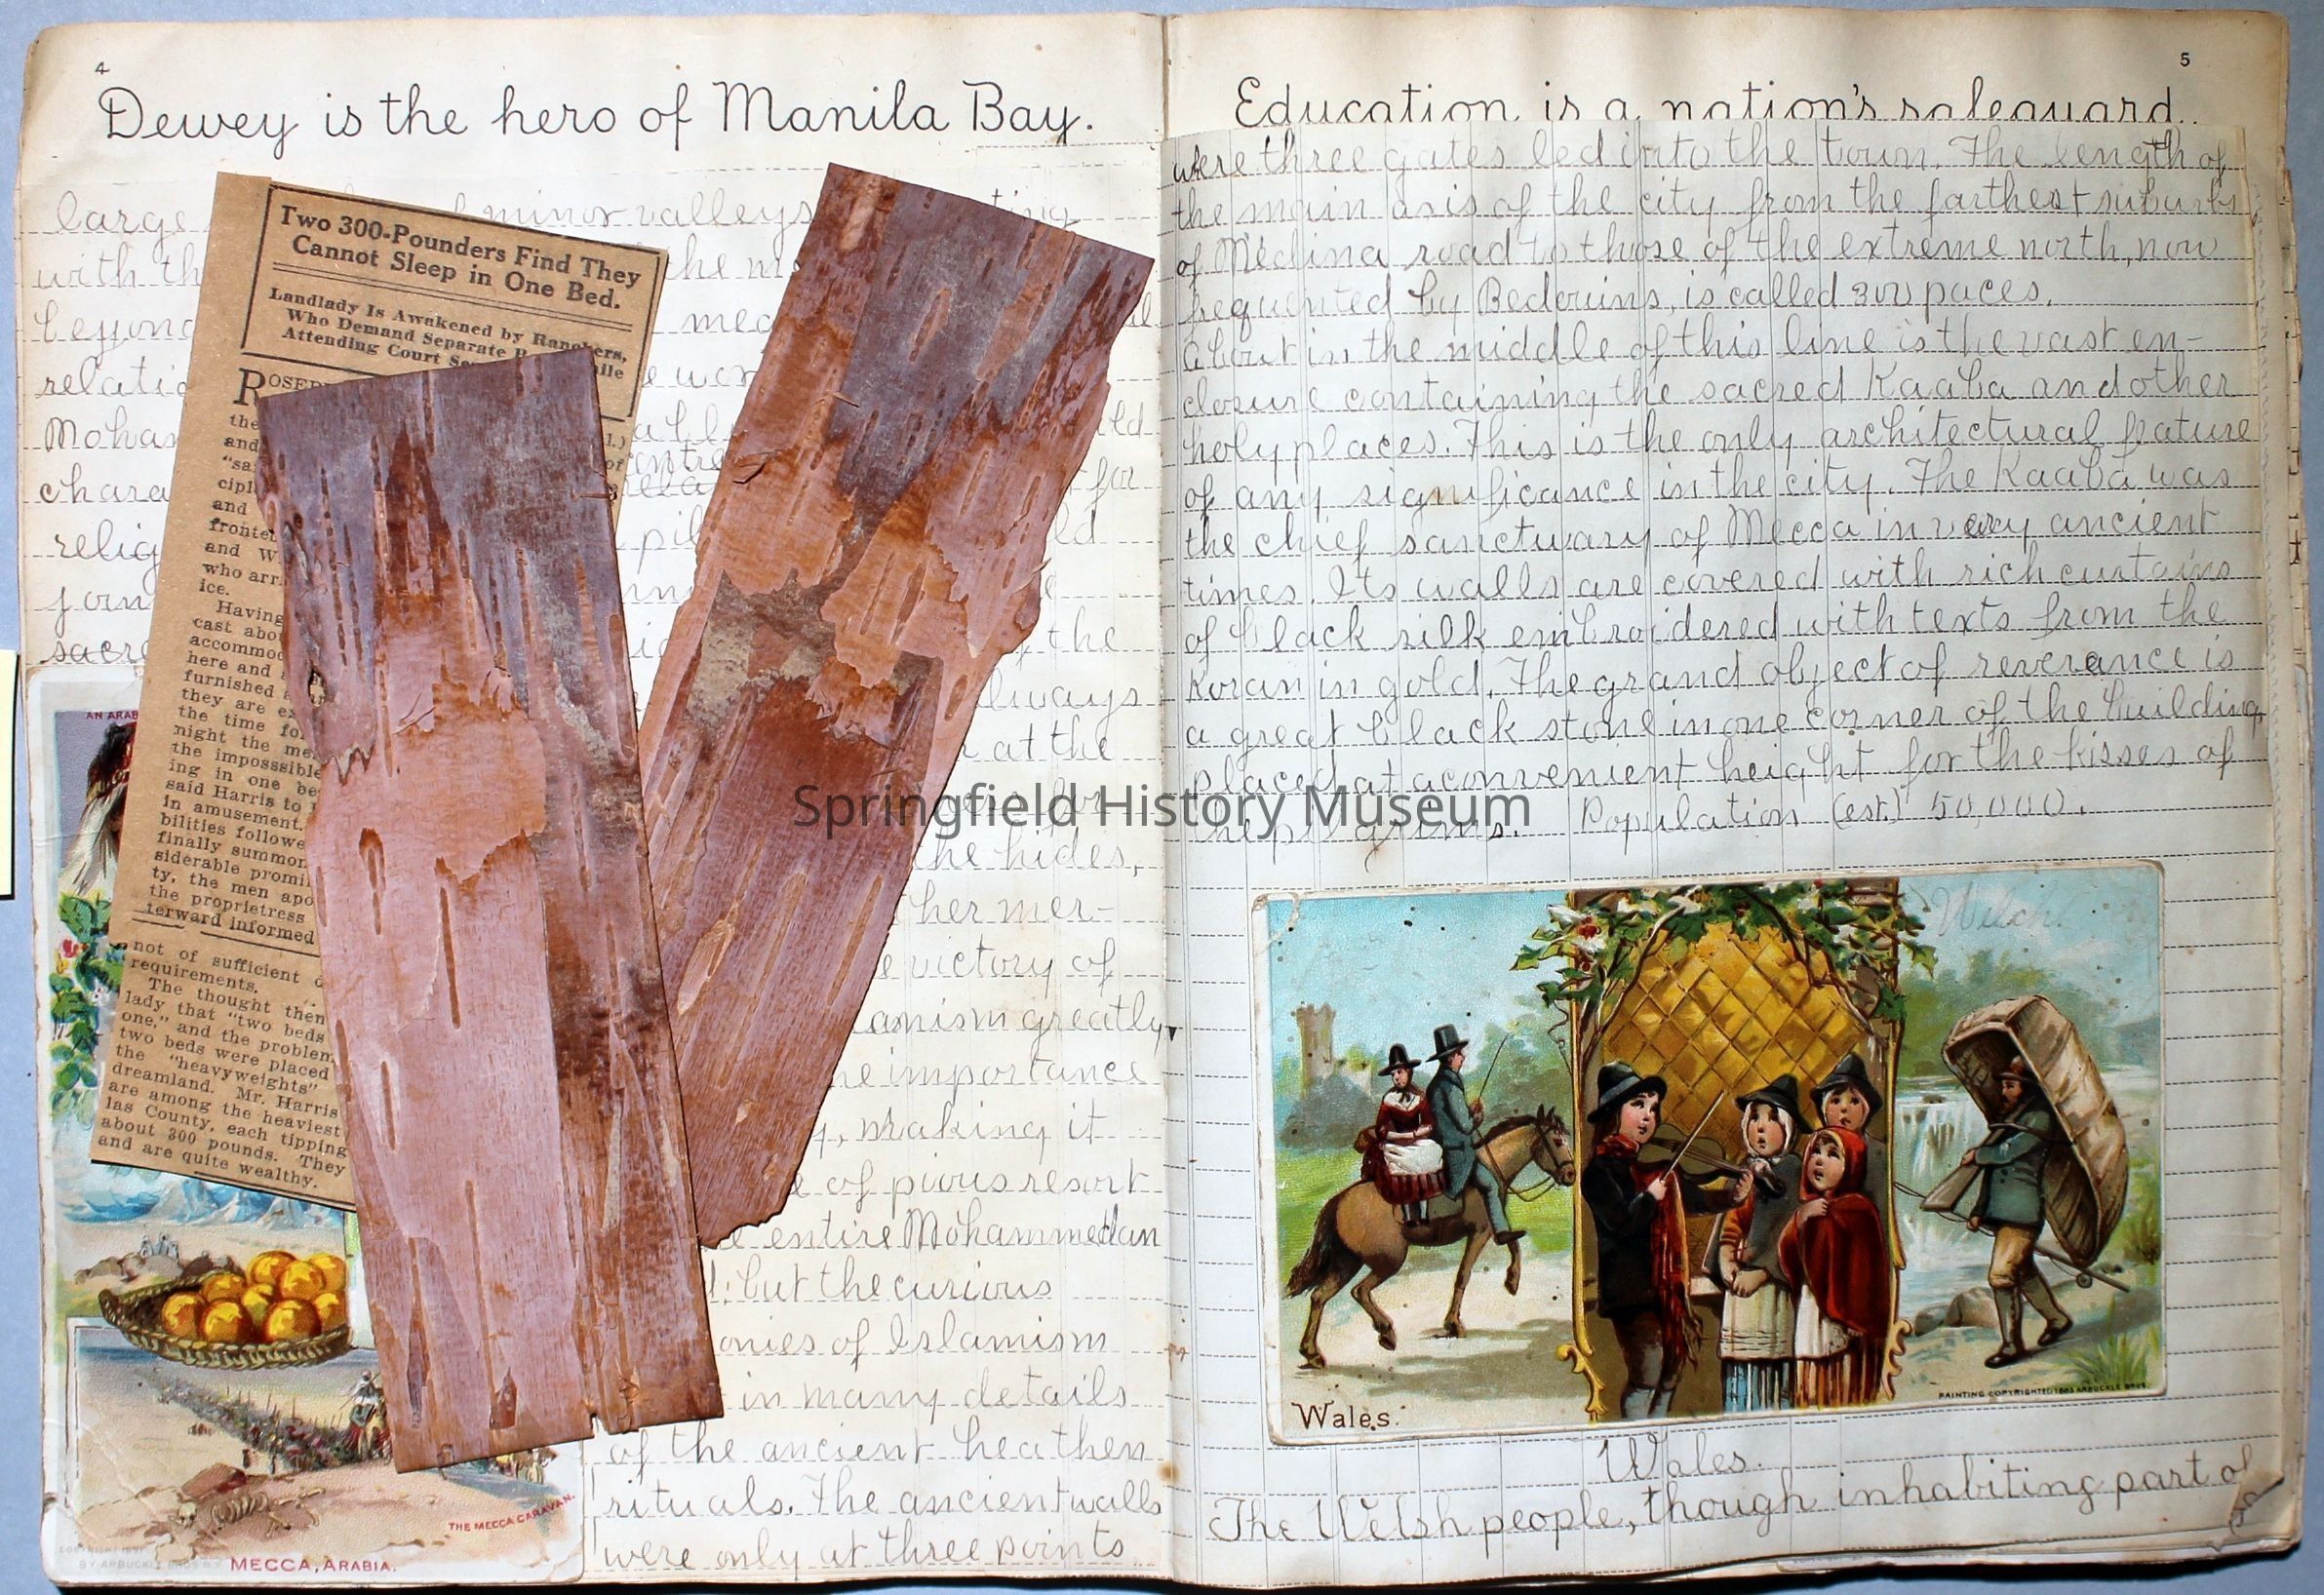 4
Dewey is the hero of Manila Bay.
large minor valleys ting
with th he m
beyond med
relatio e wer
Mohar
chara for
relig pil ld
form
sacre the
lways
at the
he hides,
ther mer-
e victory of
amism greatly
he importance
y, making it
e of pious resort
e entire Mohammedan
d; but the curious
onies of Islamism
in many details
of the ancient heathen
rituals. The ancient walls
were only at three points
Two 300-Pounders Find They
Cannot Sleep in One Bed.
Landlady Is Awakened by Ranchers,
Who Demand Separate
Attending Court Se ile
ROSEB
the
and
"sa
cipl
and
fronted
and W
who arr
ice.
Having
cast abou
accommod
here and a
furnished
they are ex
the time fo
night the me
the impossible
ing in one be
said Harris to
in amusement.
bilities followe
finally summon
siderable promi
ty, the men apo
the proprietress
terward informed
not of sufficient
requirements.
The thought then
lady that "two beds
one," and the problem
two beds were placed
the "heavyweights"
dreamland. Mr. Harris
are among the heaviest
las County, each tipping
about 300 pounds. They
and are quite wealthy.
AN ARAB
THE MECCA CARAVAN.
COPYRIGHT
BY ARBUCKLE BROS N.Y.
MECCA, ARABIA.
5
Education is a nation's safeguard.
were three gates led into the town. The length of
the main axis of the city from the farthest suburbs
of Medina road to those of the extreme north, now
frequented by Bedouins, is called 300 paces.
About in the middle of this line is the vast en-
closure containing the sacred Kaaba and other
holy places. This is the only architectural feature
of any significance in the city. The Kaaba was
the chief sanctuary of Mecca in very ancient
times. Its walls are covered with rich curtains
of black silk embroidered with texts from the
Koran in gold. The grand object of reverance is
a great black stone in one corner of the building,
placed at a convenient height for the kisses of
the pilgrims. Population (est.) 50,000.
Welch.
Wales.
PAINTING COPYRIGHTED 1893 ARBUCKLE BROS.
Wales.
The Welsh people, though inhabiting part of
Springfield History Museum